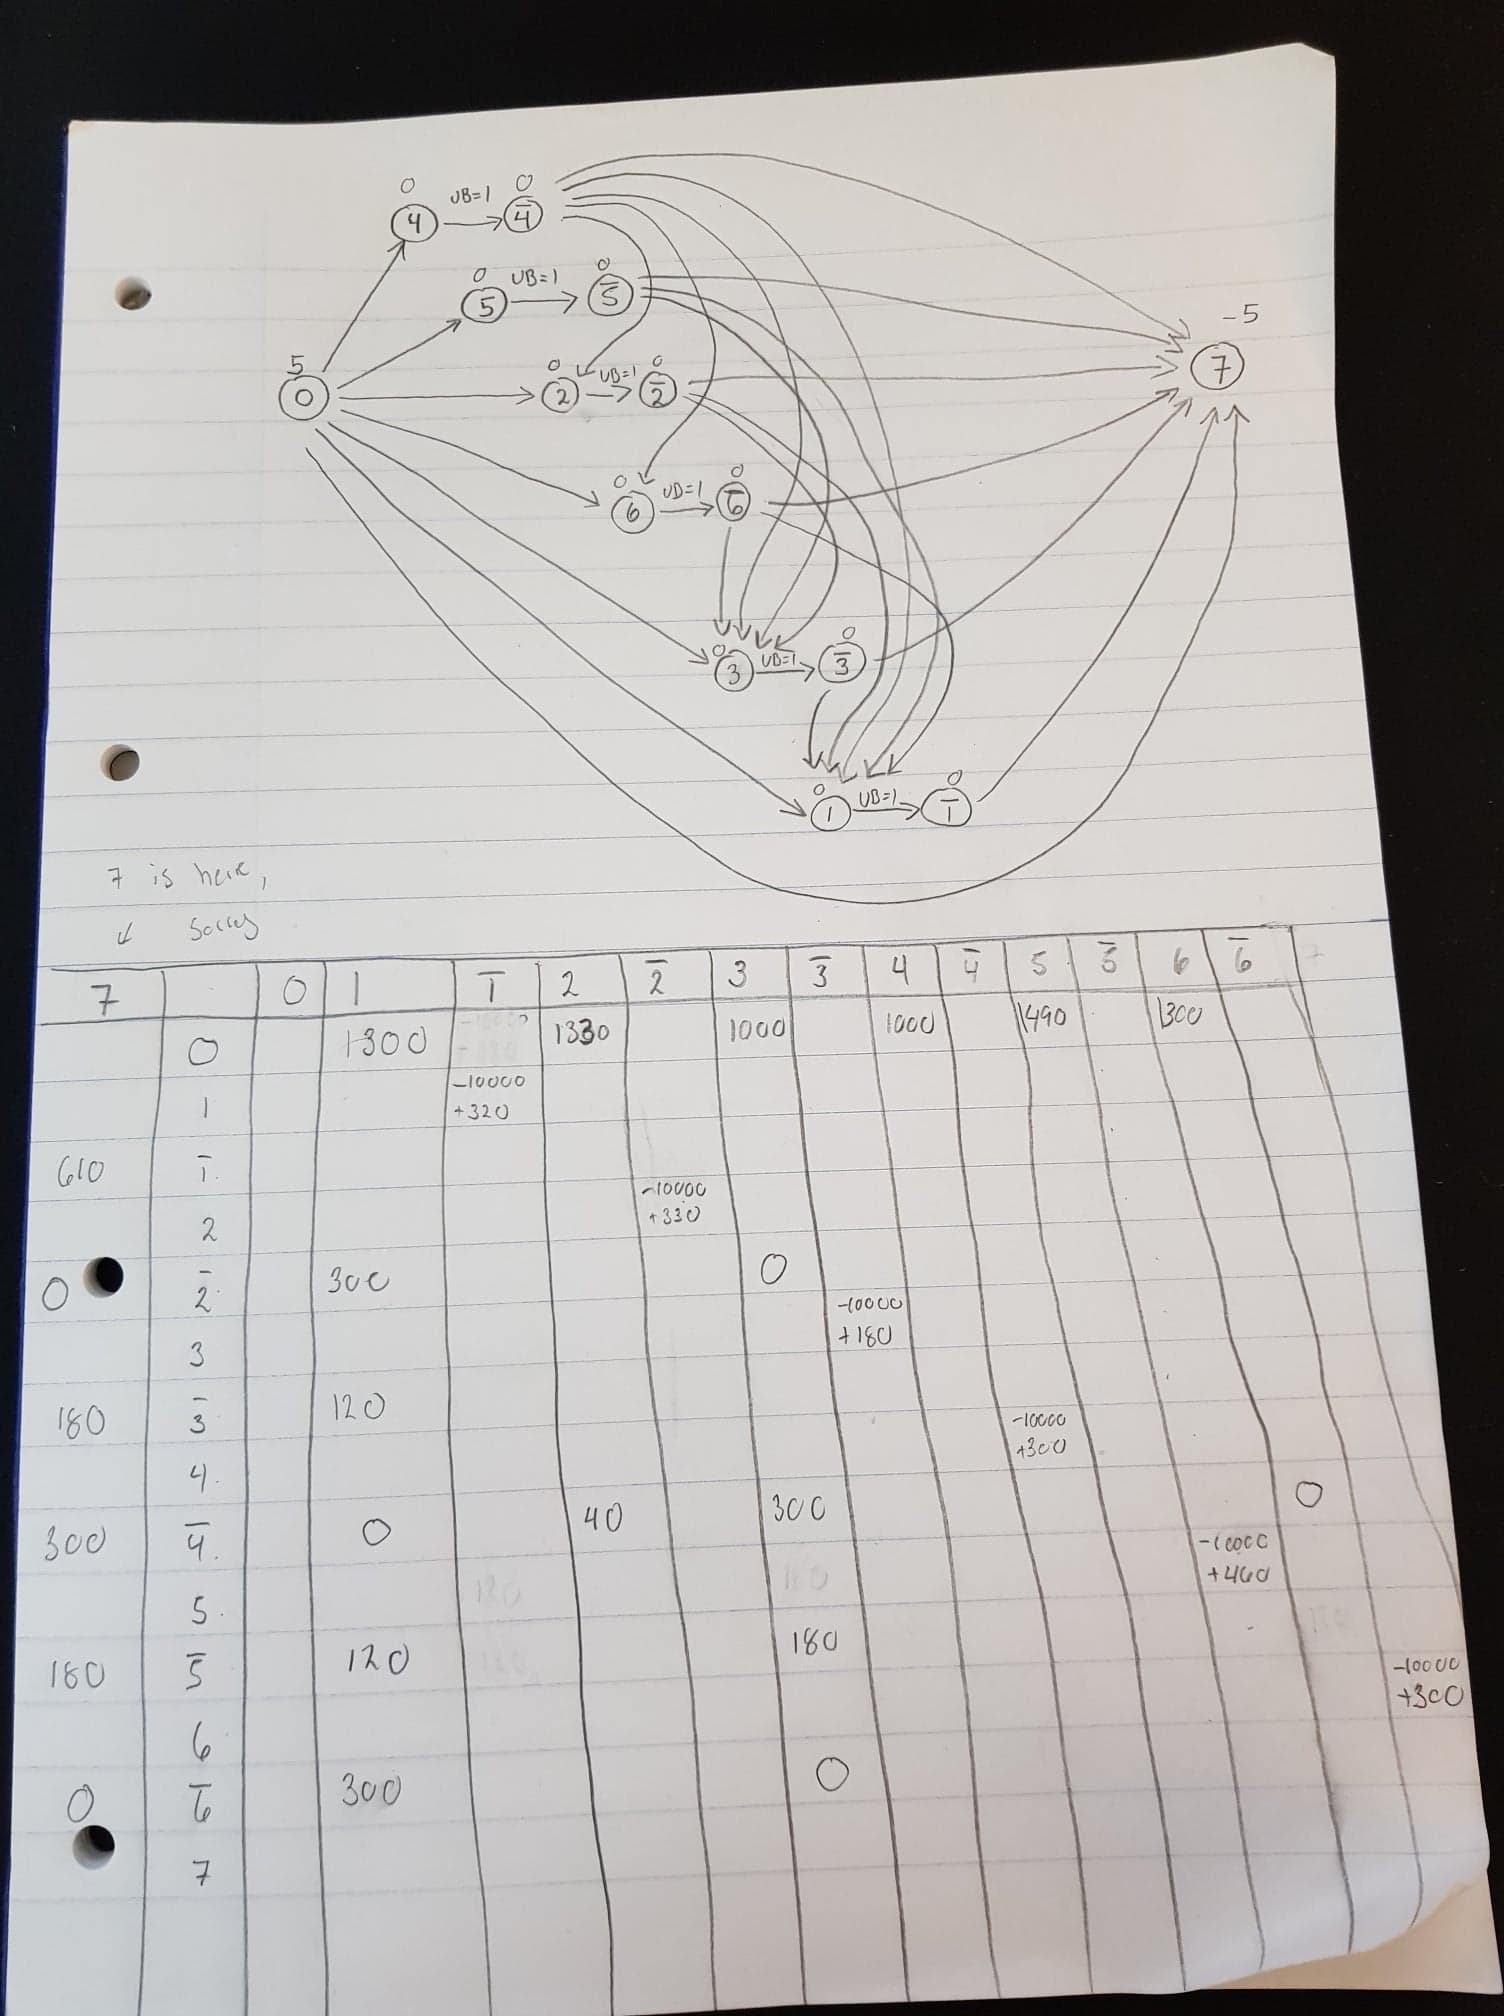 0 UB=1 0
4 4̅
0 UB=1 0
5 5̅
-5
7
5
0
0 UB=1 0
2 2̅
0 UB=1 0
6 6̅
0 UB=1 0
3 3̅
0 UB=1 0
1 1̅
7 is here,
↓ sorry
7 0 1 1̅ 2 2̅ 3 3̅ 4 4̅ 5 5̅ 6 6̅
0 1300 1330 1000 1000 1490 1300
1 -10000
+320
610 1̅
2 -10000
+330
0 2̅ 300 0
3 -10000
+180
180 3̅ 120
4 -10000
+300
300 4̅ 0 40 300 0
5 -10000
+460
180 5̅ 120 180
6 -10000
+300
0 6̅ 300 0
7